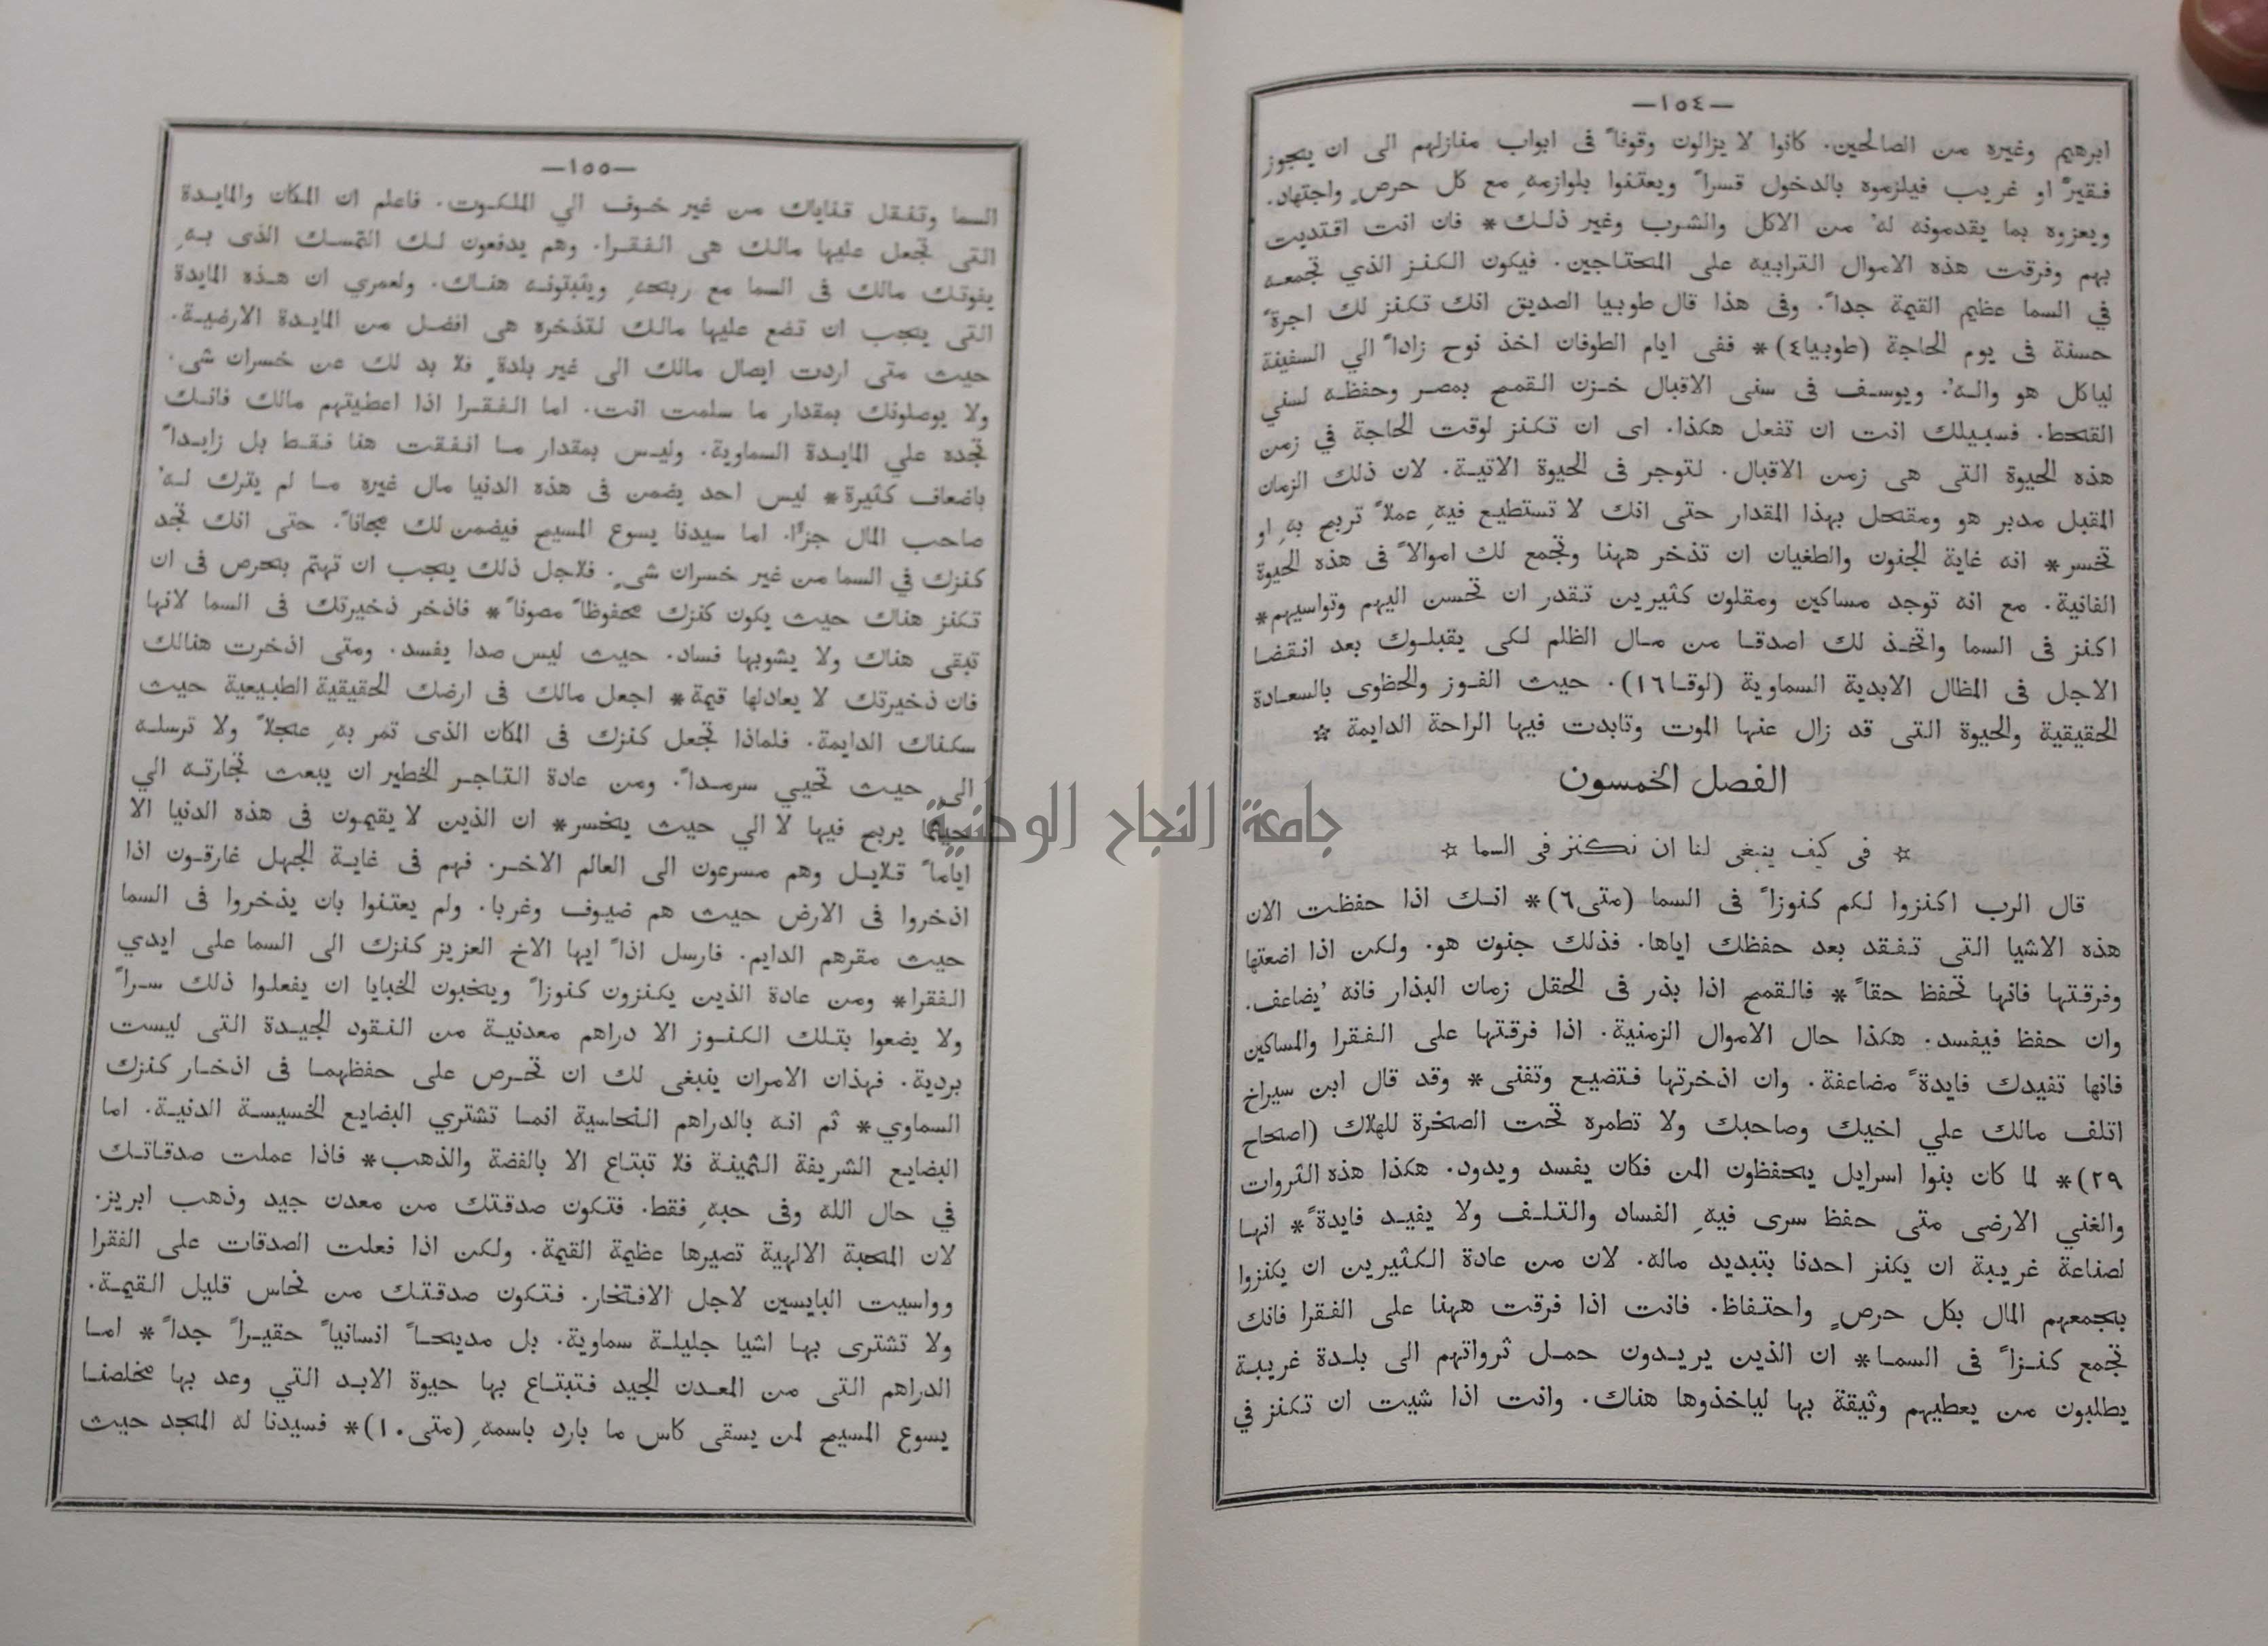 —١٥٤—
ابرهيم وغيره من الصالحين. كانوا لا يزالون وقوفاً فى ابواب منازلهم الى ان يتجوز
فقيرٌ او غريب فيلزموه بالدخول قسراً ويعتنوا بلوازمهِ مع كل حرصٍ واجتهاد.
ويعزوه بما يقدمونه لهُ من الاكل والشرب وغير ذلك* فان انت اقتديت
بهم وفرقت هذه الاموال الترابيه على المحتاجين. فيكون الكنز الذي تجمعه
في السما عظيم القيمة جداً. وفى هذا قال طوبيا الصديق انك تكنز لك اجرةً
حسنة فى يوم الحاجة (طوبيا٤)* ففى ايام الطوفان اخذ نوح زاداً الي السفينة
لياكل هو والهُ. ويوسف فى سنى الاقبال خزن القمح بمصر وحفظه لسني
القحط. فسبيلك انت ان تفعل هكذا. اى ان تكنز لوقت الحاجة في زمن
هذه الحيوة التى هى زمن الاقبال. لتوجر فى الحيوة الاتية. لان ذلك الزمان
المقبل مدبر هو ومقحل بهذا المقدار حتى انك لا تستطيع فيهِ عملاً تربح بهِ او
تخسر* انه غاية الجنون والطغيان ان تذخر ههنا وتجمع لك اموالاً فى هذه الحيوة
الفانية. مع انه توجد مساكين ومقلون كثيرين تقدر ان تحسن اليهم وتواسيهم*
اكنز فى السما واتخذ لك اصدقا من مال الظلم لكى يقبلوك بعد انقضا
الاجل فى المظال الابدية السماوية (لوقا١٦). حيث الفوز والحظوى بالسعادة
الحقيقية والحيوة التى قد زال عنها الموت وتابدت فيها الراحة الدايمة ☆
الفصل الخمسون
☆ فى كيف ينبغى لنا ان نكنز فى السما ☆
قال الرب اكنزوا لكم كنوزاً فى السما (متى٦)* انك اذا حفظت الان
هذه الاشيا التى تفقد بعد حفظك اياها. فذلك جنون هو. ولكن اذا اضعتها
وفرقتها فانها تحفظ حقاً* فالقمح اذا بذر فى الحقل زمان البذار فانه يُضاعف.
وان حفظ فيفسد. هكذا حال الاموال الزمنية. اذا فرقتها على الفقرا والمساكين
فانها تفيدك فايدةً مضاعفة. وان اذخرتها فتضيع وتفنى* وقد قال ابن سيراخ
اتلف مالك علي اخيك وصاحبك ولا تطمره تحت الصخرة للهلاك (اصحاح
٢٩)* لما كان بنوا اسرايل يحفظون المن فكان يفسد ويدود. هكذا هذه الثروات
والغني الارضى متى حفظ سرى فيهِ الفساد والتلف ولا يفيد فايدةً* انها
لصناعة غريبة ان يكنز احدنا بتبديد ماله. لان من عادة الكثيرين ان يكنزوا
بتجمعهم المال بكل حرصٍ واحتفاظ. فانت اذا فرقت ههنا على الفقرا فانك
تجمع كنزاً فى السما* ان الذين يريدون حمل ثرواتهم الى بلدة غريبة
يطلبون من يعطيهم وثيقة بها لياخذوها هناك. وانت اذا شيت ان تكنز في
—١٥٥—
السما وتنقل قناياك من غير خوف الي الملكوت. فاعلم ان المكان والمايدة
التى تجعل عليها مالك هى الفقرا. وهم يدفعون لك التمسك الذى بهِ
يفوتك مالك فى السما مع ربحهِ ويثبتونه هناك. ولعمري ان هذه المايدة
التى يجب ان تضع عليها مالك لتذخره هى افضل من المايدة الارضية.
حيث متى اردت ايصال مالك الى غير بلدةٍ فلا بد لك عن خسران شى.
ولا يوصلونك بمقدار ما سلمت انت. اما الفقرا اذا اعطيتهم مالك فانك
تجده علي المايدة السماوية. وليس بمقدار ما انفقت هنا فقط بل زايداً
باضعاف كثيرة* ليس احد يضمن فى هذه الدنيا مال غيره ما لم يترك لهُ
صاحب المال جزًّا. اما سيدنا يسوع المسيح فيضمن لك مجاناً. حتى انك تجد
كنزك في السما من غير خسران شىٍ. فلاجل ذلك يجب ان تهتم بحرص فى ان
تكنز هناك حيث يكون كنزك محفوظاً مصوناً* فاذخر ذخيرتك فى السما لانها
تبقى هناك ولا يشوبها فساد. حيث ليس صدا يفسد. ومتى اذخرت هنالك
فان ذخيرتك لا يعادلها قيمة* اجعل مالك فى ارضك الحقيقية الطبيعية حيث
سكناك الدايمة. فلماذا تجعل كنزك فى المكان الذى تمر بهِ عجلاً ولا ترسله
الى حيث تحيي سرمداً. ومن عادة التاجر الخطير ان يبعث تجارته الي
حيثما يربح فيها لا الي حيث يخسر* ان الذين لا يقيمون فى هذه الدنيا الا
اياماً قلايل وهم مسرعون الى العالم الاخر. فهم فى غاية الجهل غارقون اذا
اذخروا فى الارض حيث هم ضيوف وغربا. ولم يعتنوا بان يذخروا فى السما
حيث مقرهم الدايم. فارسل اذاً ايها الاخ العزيز كنزك الى السما على ايدي
الفقرا* ومن عادة الذين يكنزون كنوزاً ويخبون الخبايا ان يفعلوا ذلك سراً
ولا يضعوا بتلك الكنوز الا دراهم معدنية من النقود الجيدة التى ليست
بردية. فهذان الامران ينبغى لك ان تحرص على حفظهما فى اذخار كنزك
السماوي* ثم انه بالدراهم النحاسية انما تشتري البضايع الخسيسة الدنية. اما
البضايع الشريفة الثمينة فلا تبتاع الا بالفضة والذهب* فاذا عملت صدقاتك
في حال الله وفى حبهِ فقط. فتكون صدقتك من معدن جيد وذهب ابريز.
لان المحبة الالهية تصيرها عظيمة القيمة. ولكن اذا فعلت الصدقات على الفقرا
وواسيت البايسين لاجل الافتخار. فتكون صدقتك من نحاس قليل القيمة.
ولا تشترى بها اشيا جليلة سماوية. بل مديحاً انسانياً حقيراً جداً* اما
الدراهم التى من المعدن الجيد فتبتاع بها حيوة الابد التي وعد بها مخلصنا
يسوع المسيح لمن يسقى كاس ما بارد باسمهِ (متى١٠)* فسيدنا له المجد حيث
جامعة النجاح الوطنية